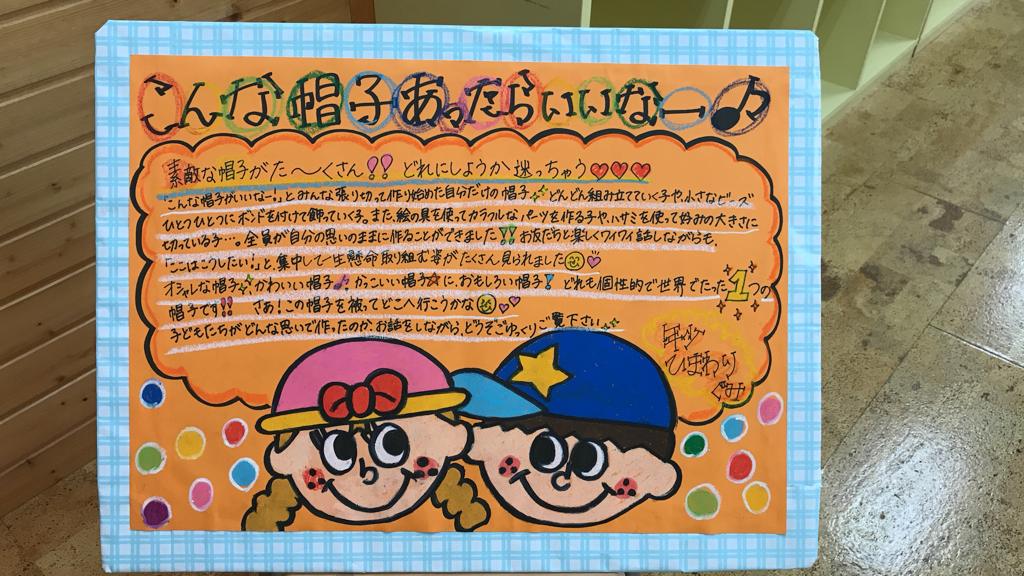 こんな帽子あったらいいなー♪
素敵な帽子がた〜くさん!! どれにしようか迷っちゃう♡♡♡
こんな帽子がいいなー!とみんな張り切って作り始めた自分だけの帽子✨どんどん組み立てていく子や、小さなビーズ
ひとつひとつにボンドを付けて飾っていく子。また、絵の具を使ってカラフルなパーツを作る子や、ハサミを使って好みの大きさに
切っている子…。全員が自分の思いのままに作ることができました!! お友だちと楽しくワイワイ話しながらも、
「ここはこうしたい!」と、集中して一生懸命取り組む姿がたくさん見られました☺♡
オシャレな帽子✨かわいい帽子♪かっこいい帽子☆に、おもしろい帽子! どれも個性的で世界でたった1つの
帽子です!! さあ!この帽子を被ってどこへ行こうかな☺♡
子どもたちがどんな思いで作ったのか、お話をしながら、どうぞごゆっくりご覧下さい。✨
ひまわり
ぐみ